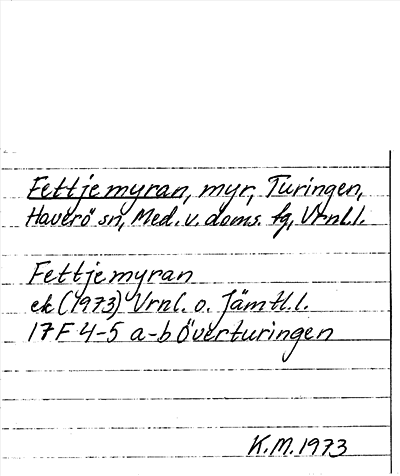 Fettjemyran, myr, Turingen,
Haverö sn, Med. v. doms. fg, Vrnl.l.
Fettjemyran
ek (1973) Vrnl. o. Jämtl.l.
17F 4-5 a-b Överturingen
K.M. 1973